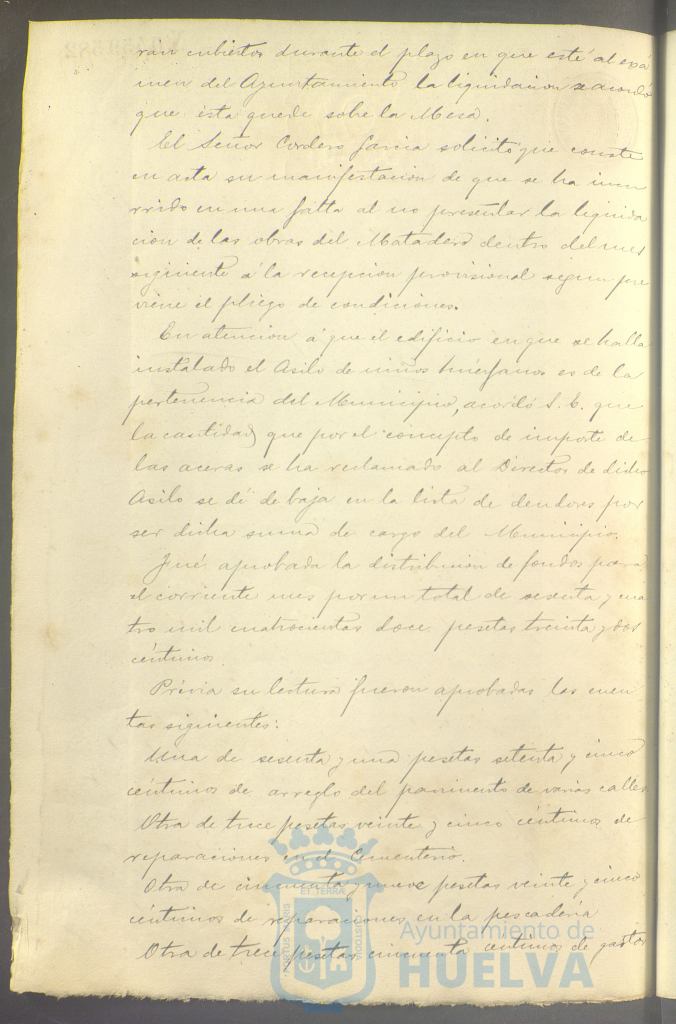 rán cubiertos durante el plazo en que esté al exá
men del Ayuntamiento la liquidacion se acordó
que ésta quede sobre la Mesa.
El Señor Cordero Garcia solicitó que conste
en acta su manifestacion de que se ha incu
rrido en una falta al no presentar la liquida
cion de las obras del Matadero dentro del mes
siguiente á la recepcion provisional segun pre
viene el pliego de condiciones.
En atencion á que el edificio en que se halla
instalado el Asilo de niños huérfanos es de la
pertenencia del Municipio, acordó S. E. que
la cantidad que por el concepto de importe de
las aceras se ha reclamado al Director de dicho
Asilo se dé de baja en la lista de deudores por
ser dicha suma de cargo del Municipio.
Fué aprobada la distribucion de fondos para
el corriente mes por un total de sesenta y cua
tro mil cuatrocientas doce pesetas treinta y dos
céntimos
Prévia su lectura fueron aprobadas las cuen
tas siguientes:
Una de sesenta y una pesetas setenta y cinco
céntimos de arreglo del pavimento de varias calles.
Otra de trece pesetas veinte y cinco céntimos de
reparaciones en el Cementerio.
Otra de cincuenta y nueve pesetas veinte y cinco
céntimos de reparaciones en la pescadería
Otra de trece pesetas cincuenta centimos de gastos
PORTUS MARIS
ET TERRÆ
CUSTODIA
Ayuntamiento de
HUELVA